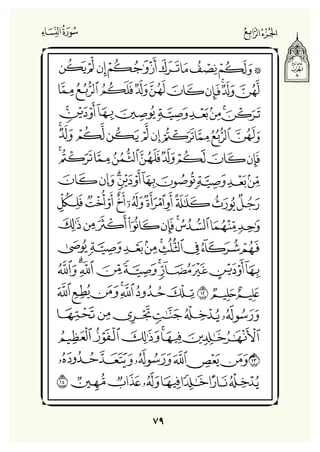 الجزء الرابع
سورة النساء
۞ ولكم نصف ما ترك أزواجكم إن لم يكن
لهن ولد فإن كان لهن ولد فلكم الربع مما
تركن من بعد وصية يوصين بها أو دين
ولهن الربع مما تركتم إن لم يكن لكم ولد
فإن كان لكم ولد فلهن الثمن مما تركتم
من بعد وصية توصون بها أو دين وإن كان
رجل يورث كلالة أو امرأة وله أخ أو أخت فلكل
واحد منهما السدس فإن كانوا أكثر من ذلك
فهم شركاء في الثلث من بعد وصية يوصى
بها أو دين غير مضار وصية من الله والله
عليم حليم ١٢ تلك حدود الله ومن يطع الله
ورسوله يدخله جنات تجري من تحتها
الأنهار خالدين فيها وذلك الفوز العظيم
١٣ ومن يعص الله ورسوله ويتعد حدوده
يدخله نارا خالدا فيها وله عذاب مهين ١٤
٧٩